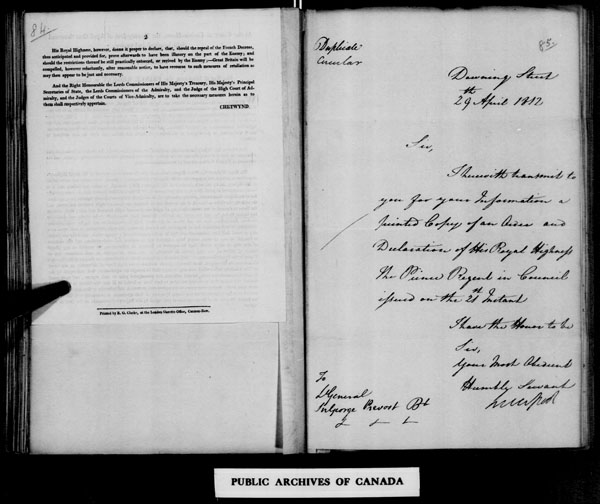 84.
2
His Royal Highness, however, deems it proper to declare, that, should the repeal of the French Decrees,
thus anticipated and provided for, prove afterwards to have been illusory on the part of the Enemy; and
should the restrictions thereof be still practically enforced, or revived by the Enemy,—Great Britain will be
compelled, however reluctantly, after reasonable notice, to have recourse to such measures of retaliation as
may then appear to be just and necessary.
And the Right Honourable the Lords Commissioners of His Majesty's Treasury, His Majesty's Principal
Secretaries of State, the Lords Commissioners of the Admiralty, and the Judge of the High Court of Ad-
miralty, and the Judges of the Courts of Vice-Admiralty, are to take the necessary measures herein as to
them shall respectively appertain.
CHETWYND.
Printed by R. G. Clarke, at the London Gazette Office, Cannon-Row.
85.
Duplicate
Circular
Downing Street
29th April 1812
Sir,
I herewith transmit to
you for your Information a
printed Copy of an Order and
Declaration of His Royal Highness
The Prince Regent in Council
issued on the 21st Instant
I have the Honor to be
Sir,
Your Most Obedient
Humble Servant
Liverpool
To
Lt General
Sir George Prevost Bt
PUBLIC ARCHIVES OF CANADA